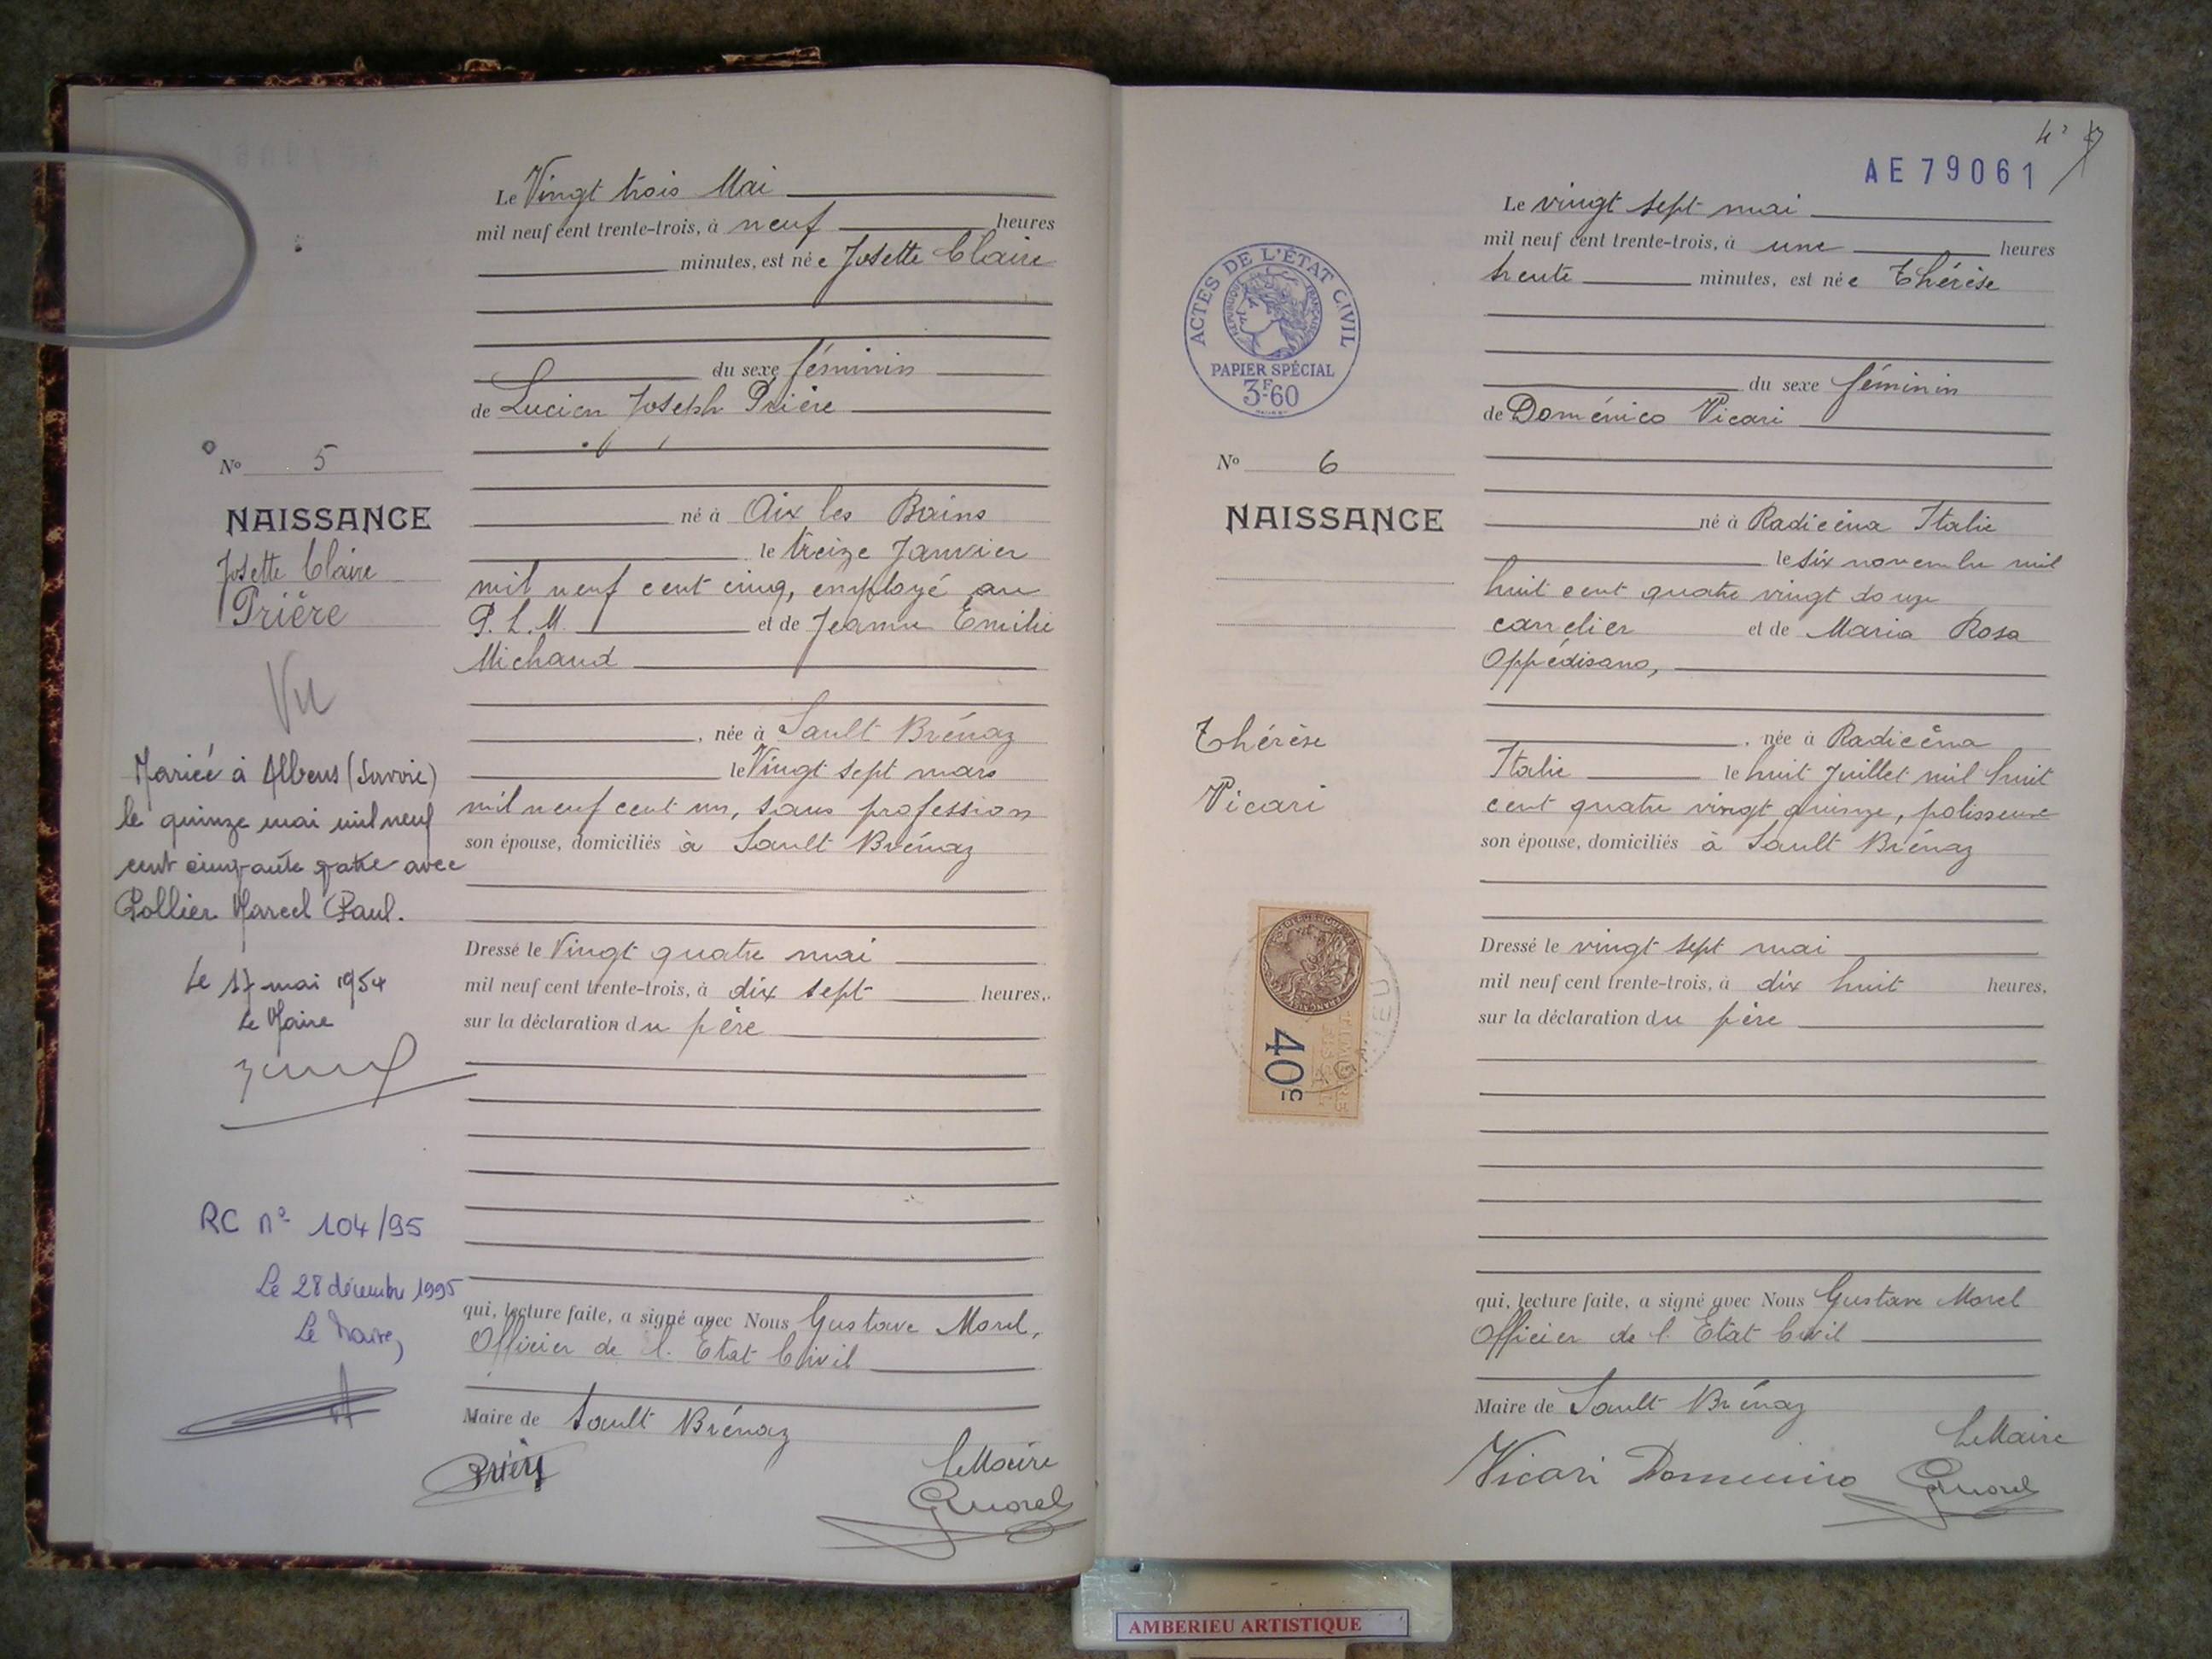 Le Vingt trois Mai
mil neuf cent trente-trois, à neuf heures
minutes, est née Josette Claire
du sexe féminin
de Lucien Joseph Prière
né à Aix les Bains
le treize Janvier
mil neuf cent cinq, employé au
P. L. M. et de Jeanne Emilie
Michaud
, née à Sault Brénaz
le Vingt sept mars
mil neuf cent un, sans profession
son épouse, domiciliés à Sault Brénaz
Dressé le Vingt quatre mai
mil neuf cent trente-trois, à dix sept heures,
sur la déclaration du père
qui, lecture faite, a signé avec Nous Gustave Morel,
Officier de l'Etat Civil
Maire de Sault Brénaz
Le Maire
GMorel
N° 5
NAISSANCE
Josette Claire
Prière
Vu
Mariée à Albens (Savoie)
le quinze mai mil neuf
cent cinquante quatre avec
Pollier Marcel Paul.
Le 17 mai 1954
Le Maire
RC n° 104/95
Le 28 décembre 1995
Le Maire,
AE 79061
Le vingt sept mai
mil neuf cent trente-trois, à une heures
trente minutes, est née Thérèse
du sexe féminin
de Doménico Vicari
né à Radicéna Italie
le six novembre mil
huit cent quatre vingt douze
carrelier et de Maria Rosa
Oppédisano,
, née à Radicéna
Italie le huit Juillet mil huit
cent quatre vingt quinze, polisseuse
son épouse, domiciliés à Sault Brénaz
Dressé le vingt sept mai
mil neuf cent trente-trois, à dix huit heures,
sur la déclaration du père
qui, lecture faite, a signé avec Nous Gustave Morel
Officier de l'Etat Civil
Maire de Sault Brénaz
Le Maire
Vicari Domenico GMorel
ACTES DE L'ÉTAT CIVIL
RÉPUBLIQUE FRANÇAISE
PAPIER SPÉCIAL
3F60
N° 6
NAISSANCE
Thérèse
Vicari
40c
AMBERIEU ARTISTIQUE